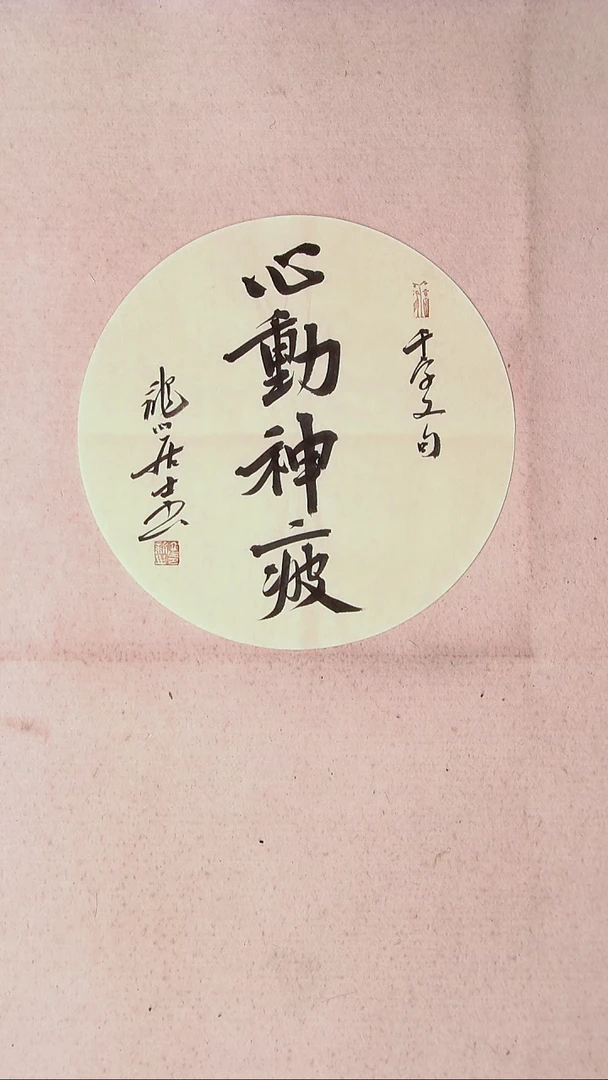 千字文句
心動神疲
龍山居士書